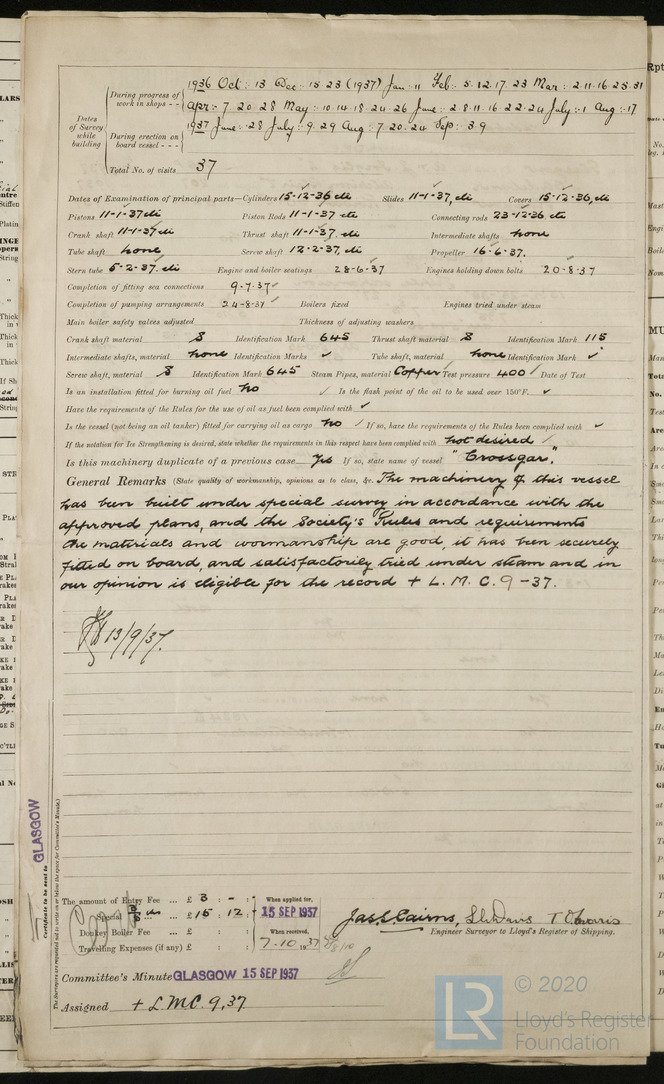 Dates of Survey while building
During progress of work in shops - -
1936 Oct: 13 Dec: 15 23 (1937) Jan: 11 Feb: 5.12.17.23 Mar: 2.11.16.23.31
Apr: 7.20.28 May: 10.14.18.24.26 June: 2.8.11.16.22.24 July: 1 Aug: 17
During erection on board vessel - - -
1937 June: 28 July: 9.29 Aug: 7.20.24 Sep: 3.9
Total No. of visits 37
Dates of Examination of principal parts—Cylinders 15-12-36 Slides 11-1-37 Covers 15-12-36
Pistons 11-1-37 Piston Rods 11-1-37 Connecting rods 23-12-36
Crank shaft 11-1-37 Thrust shaft 11-1-37 Intermediate shafts none
Tube shaft none Screw shaft 12-2-37 Propeller 16-6-37.
Stern tube 5-2-37 Engine and boiler seatings 28-6-37 Engines holding down bolts 20-8-37
Completion of fitting sea connections 9-7-37 ✓
Completion of pumping arrangements 24-8-37 ✓ Boilers fixed Engines tried under steam
Main boiler safety valves adjusted Thickness of adjusting washers
Crank shaft material S Identification Mark 645 Thrust shaft material S Identification Mark 115
Intermediate shafts, material none Identification Marks ✓ Tube shaft, material none Identification Mark ✓
Screw shaft, material S Identification Mark 645 Steam Pipes, material Copper Test pressure 400 Date of Test
Is an installation fitted for burning oil fuel no Is the flash point of the oil to be used over 150°F. ✓
Have the requirements of the Rules for the use of oil as fuel been complied with ✓
Is the vessel (not being an oil tanker) fitted for carrying oil as cargo no If so, have the requirements of the Rules been complied with ✓
If the notation for Ice Strengthening is desired, state whether the requirements in this respect have been complied with not desired
Is this machinery duplicate of a previous case Yes If so, state name of vessel "Crossgar".
General Remarks (State quality of workmanship, opinions as to class, &c. The machinery of this vessel
has been built under special survey in accordance with the
approved plans, and the Society's Rules and requirements
the materials and wormanship are good, it has been securely
fitted on board, and satisfactorily tried under steam and in
our opinion is eligible for the record + L.M.C. 9-37.
13/9/37.
GLASGOW
Certificate to be sent to
The Surveyors are requested not to write on or below the space for Committee's Minute.
The amount of Entry Fee ... £ 3 : - : When applied for,
Special ... £ 15 : 12 : 15 SEP 1937
Donkey Boiler Fee ... £ : : When received,
Travelling Expenses (if any) £ : : 7.10.1937
Jas. S. Cairns, S. C. Davis T. D. Morris
Engineer Surveyor to Lloyd's Register of Shipping.
Committee's Minute GLASGOW 15 SEP 1937
Assigned + L.M.C. 9,37
© 2020
LR
Lloyd's Register
Foundation